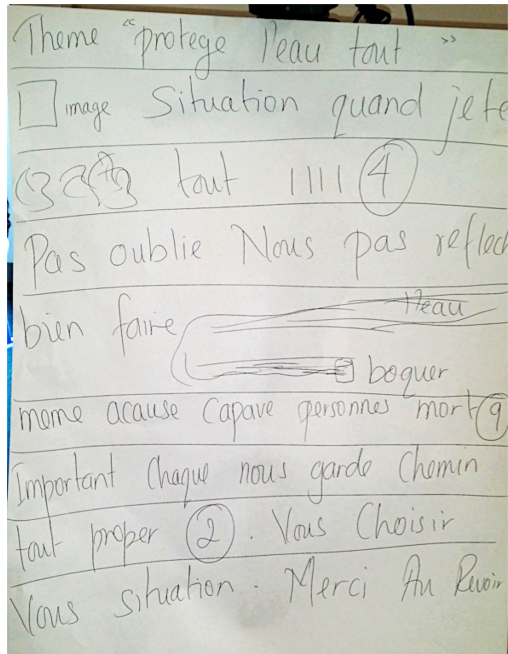 Theme "protege l'eau tout"
image Situation quand jete
tout 4
Pas oublie Nous pas reflech
bien faire l'eau
boquer
meme acause Capave personnes mort 9
Important Chaque nous garde Chemin
tout proper 2. Vous Choisir
Vous situation. Merci Au Revoir